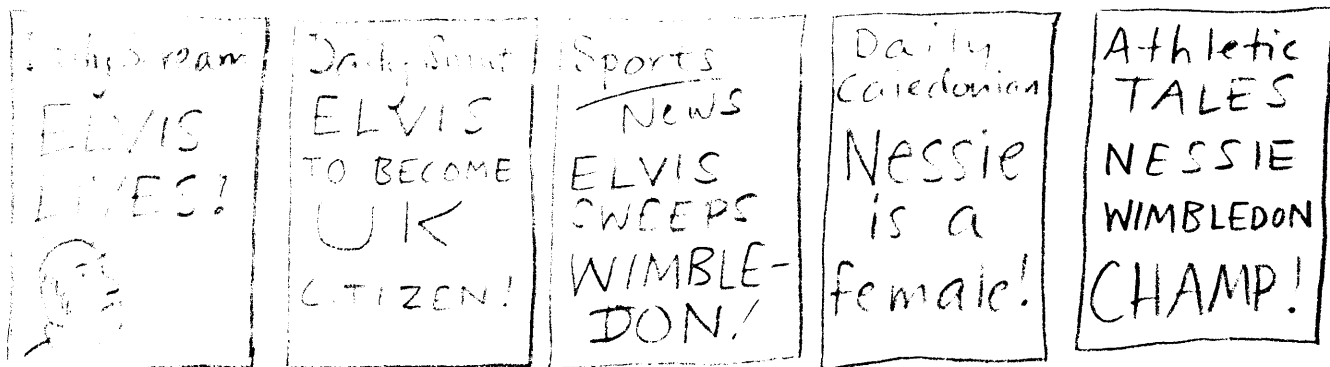 Daily Scream
ELVIS
LIVES!
Daily
ELVIS
TO BECOME
UK
CITIZEN!
Sports
News
ELVIS
SWEEPS
WIMBLE-
DON!
Daily
Caledonian
Nessie
is a
female!
Athletic
TALES
NESSIE
WIMBLEDON
CHAMP!